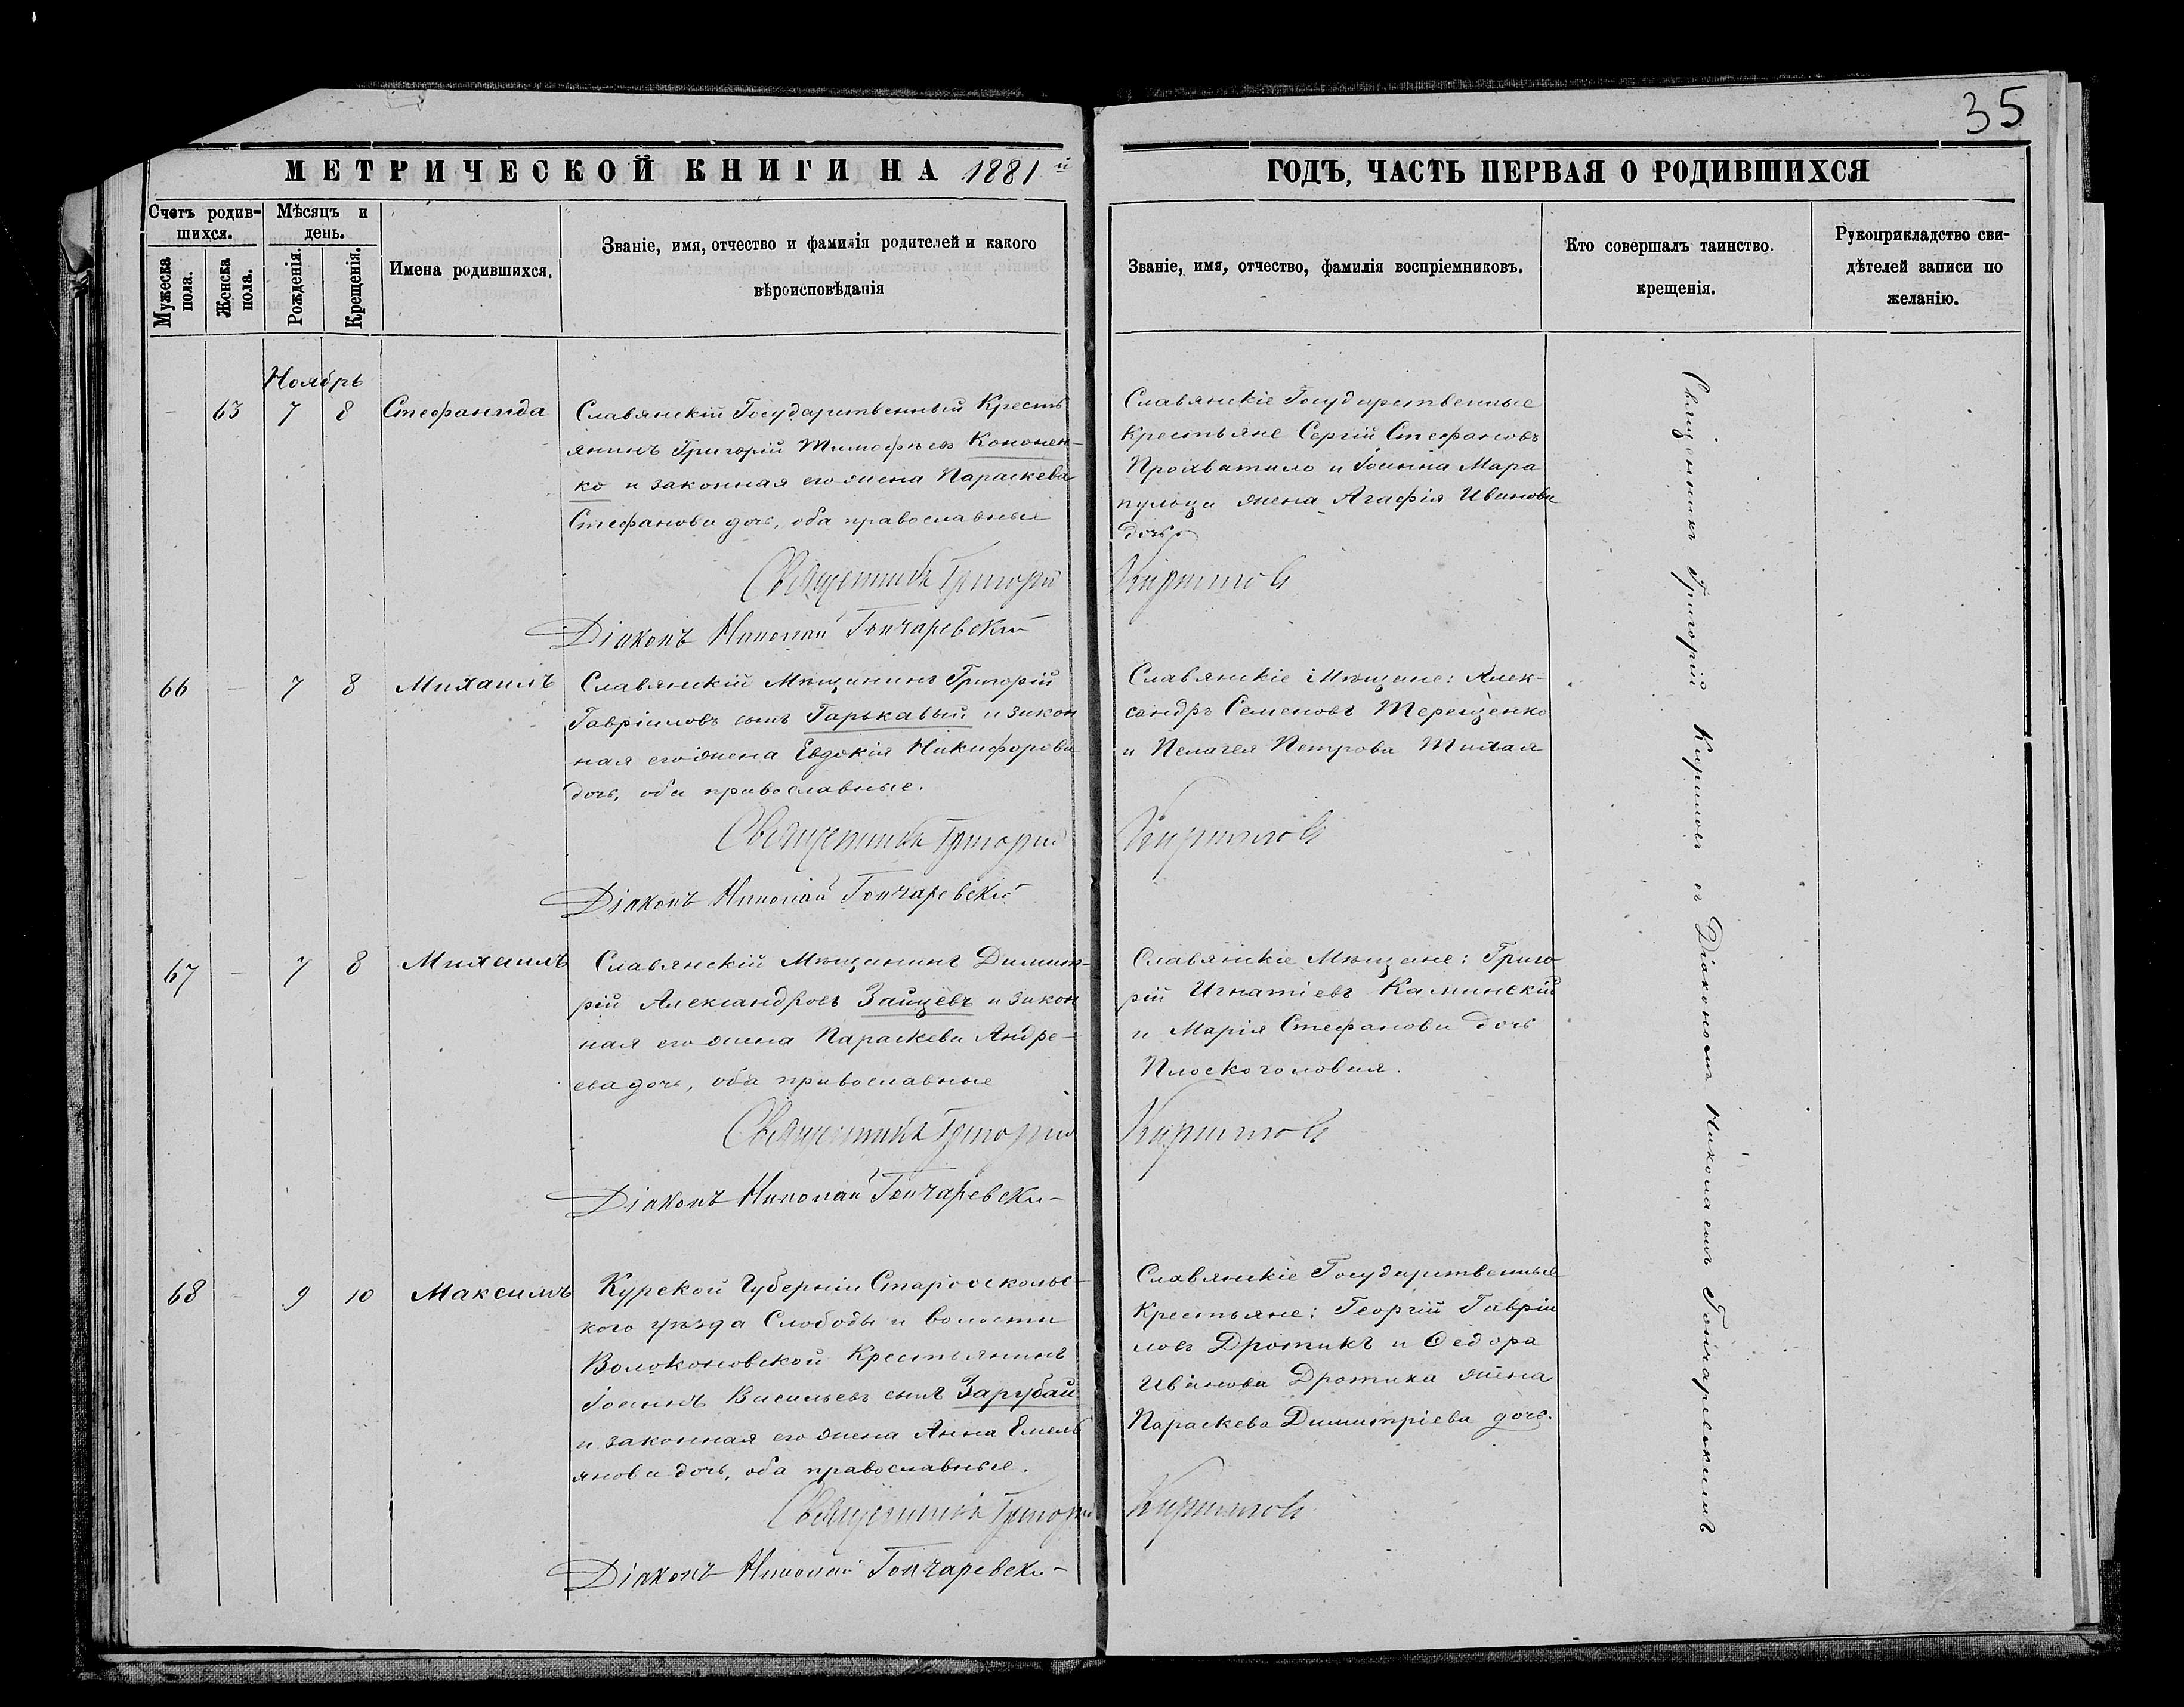 35
МЕТРИЧЕСКОЙ КНИГИ НА 1881й
ГОДЪ, ЧАСТЬ ПЕРВАЯ О РОДИВШИХСЯ
Счетъ родив-
шихся.
Мужеска
пола.
Женска
пола.
Мѣсяцъ и
день.
Рожденія.
Крещенія.
Имена родившихся.
Званіе, имя, отчество и фамилія родителей и какого
вѣроисповѣданія
Званіе, имя, отчество, фамилія воспріемниковъ.
Кто совершалъ таинство
крещенія.
Рукоприкладство сви-
дѣтелей записи по
желанію.
Ноябрь
- 63 7 8 Стефанида
Славянскій Государственный Кресть
янинъ Григорій Тимофѣевъ Кононен-
ко и законная его жена Параскева
Стефанова дочь, оба православные
Славянскіе Государственные
Крестьяне Сергій Стефановъ
Прохватило и Іоанна Мара
пульца жена Агафія Иванова
дочь
Священникъ Григорій Кирилловъ
Діаконъ Николай Гончаревскій
66 - 7 8 Михаилъ
Славянскій Мѣщанинъ Григорій
Гавріиловъ сынъ Гарькавый и закон
ная его жена Евдокія Никифорова
дочь, оба православные.
Славянскіе Мѣщане: Алек-
сандръ Семеновъ Терещенко
и Пелагея Петрова Тихая
Священникъ Григорій Кирилловъ
Діаконъ Николай Гончаревскій
67 - 7 8 Михаилъ
Славянскій Мѣщанинъ Димит-
рій Александровъ Зайцевъ и закон
ная его жена Параскева Андре-
ева дочь, оба православные
Славянскіе Мѣщане: Григо
рій Игнатіевъ Каминскій
и Марія Стефанова дочь
Плоскоголовая.
Священникъ Григорій Кирилловъ
Діаконъ Николай Гончаревскій
68 - 9 10 Максимъ
Курской Губерніи Старооскольс-
кого уѣзда Слободы и волости
Волоконовской Крестьянинъ
Іоаннъ Васильевъ сынъ Зарубай
и законная его жена Анна Емель
янова дочь, оба православные.
Славянскіе Государственные
Крестьяне: Георгій Гавріи
ловъ Дротикъ и Ѳедора
Иванова Дротика жена
Параскева Димитріева дочь.
Священникъ Григорій Кирилловъ
Діаконъ Николай Гончаревскій
Священникъ Григорій Кириловъ съ Діакономъ Николаемъ Гончаревскимъ